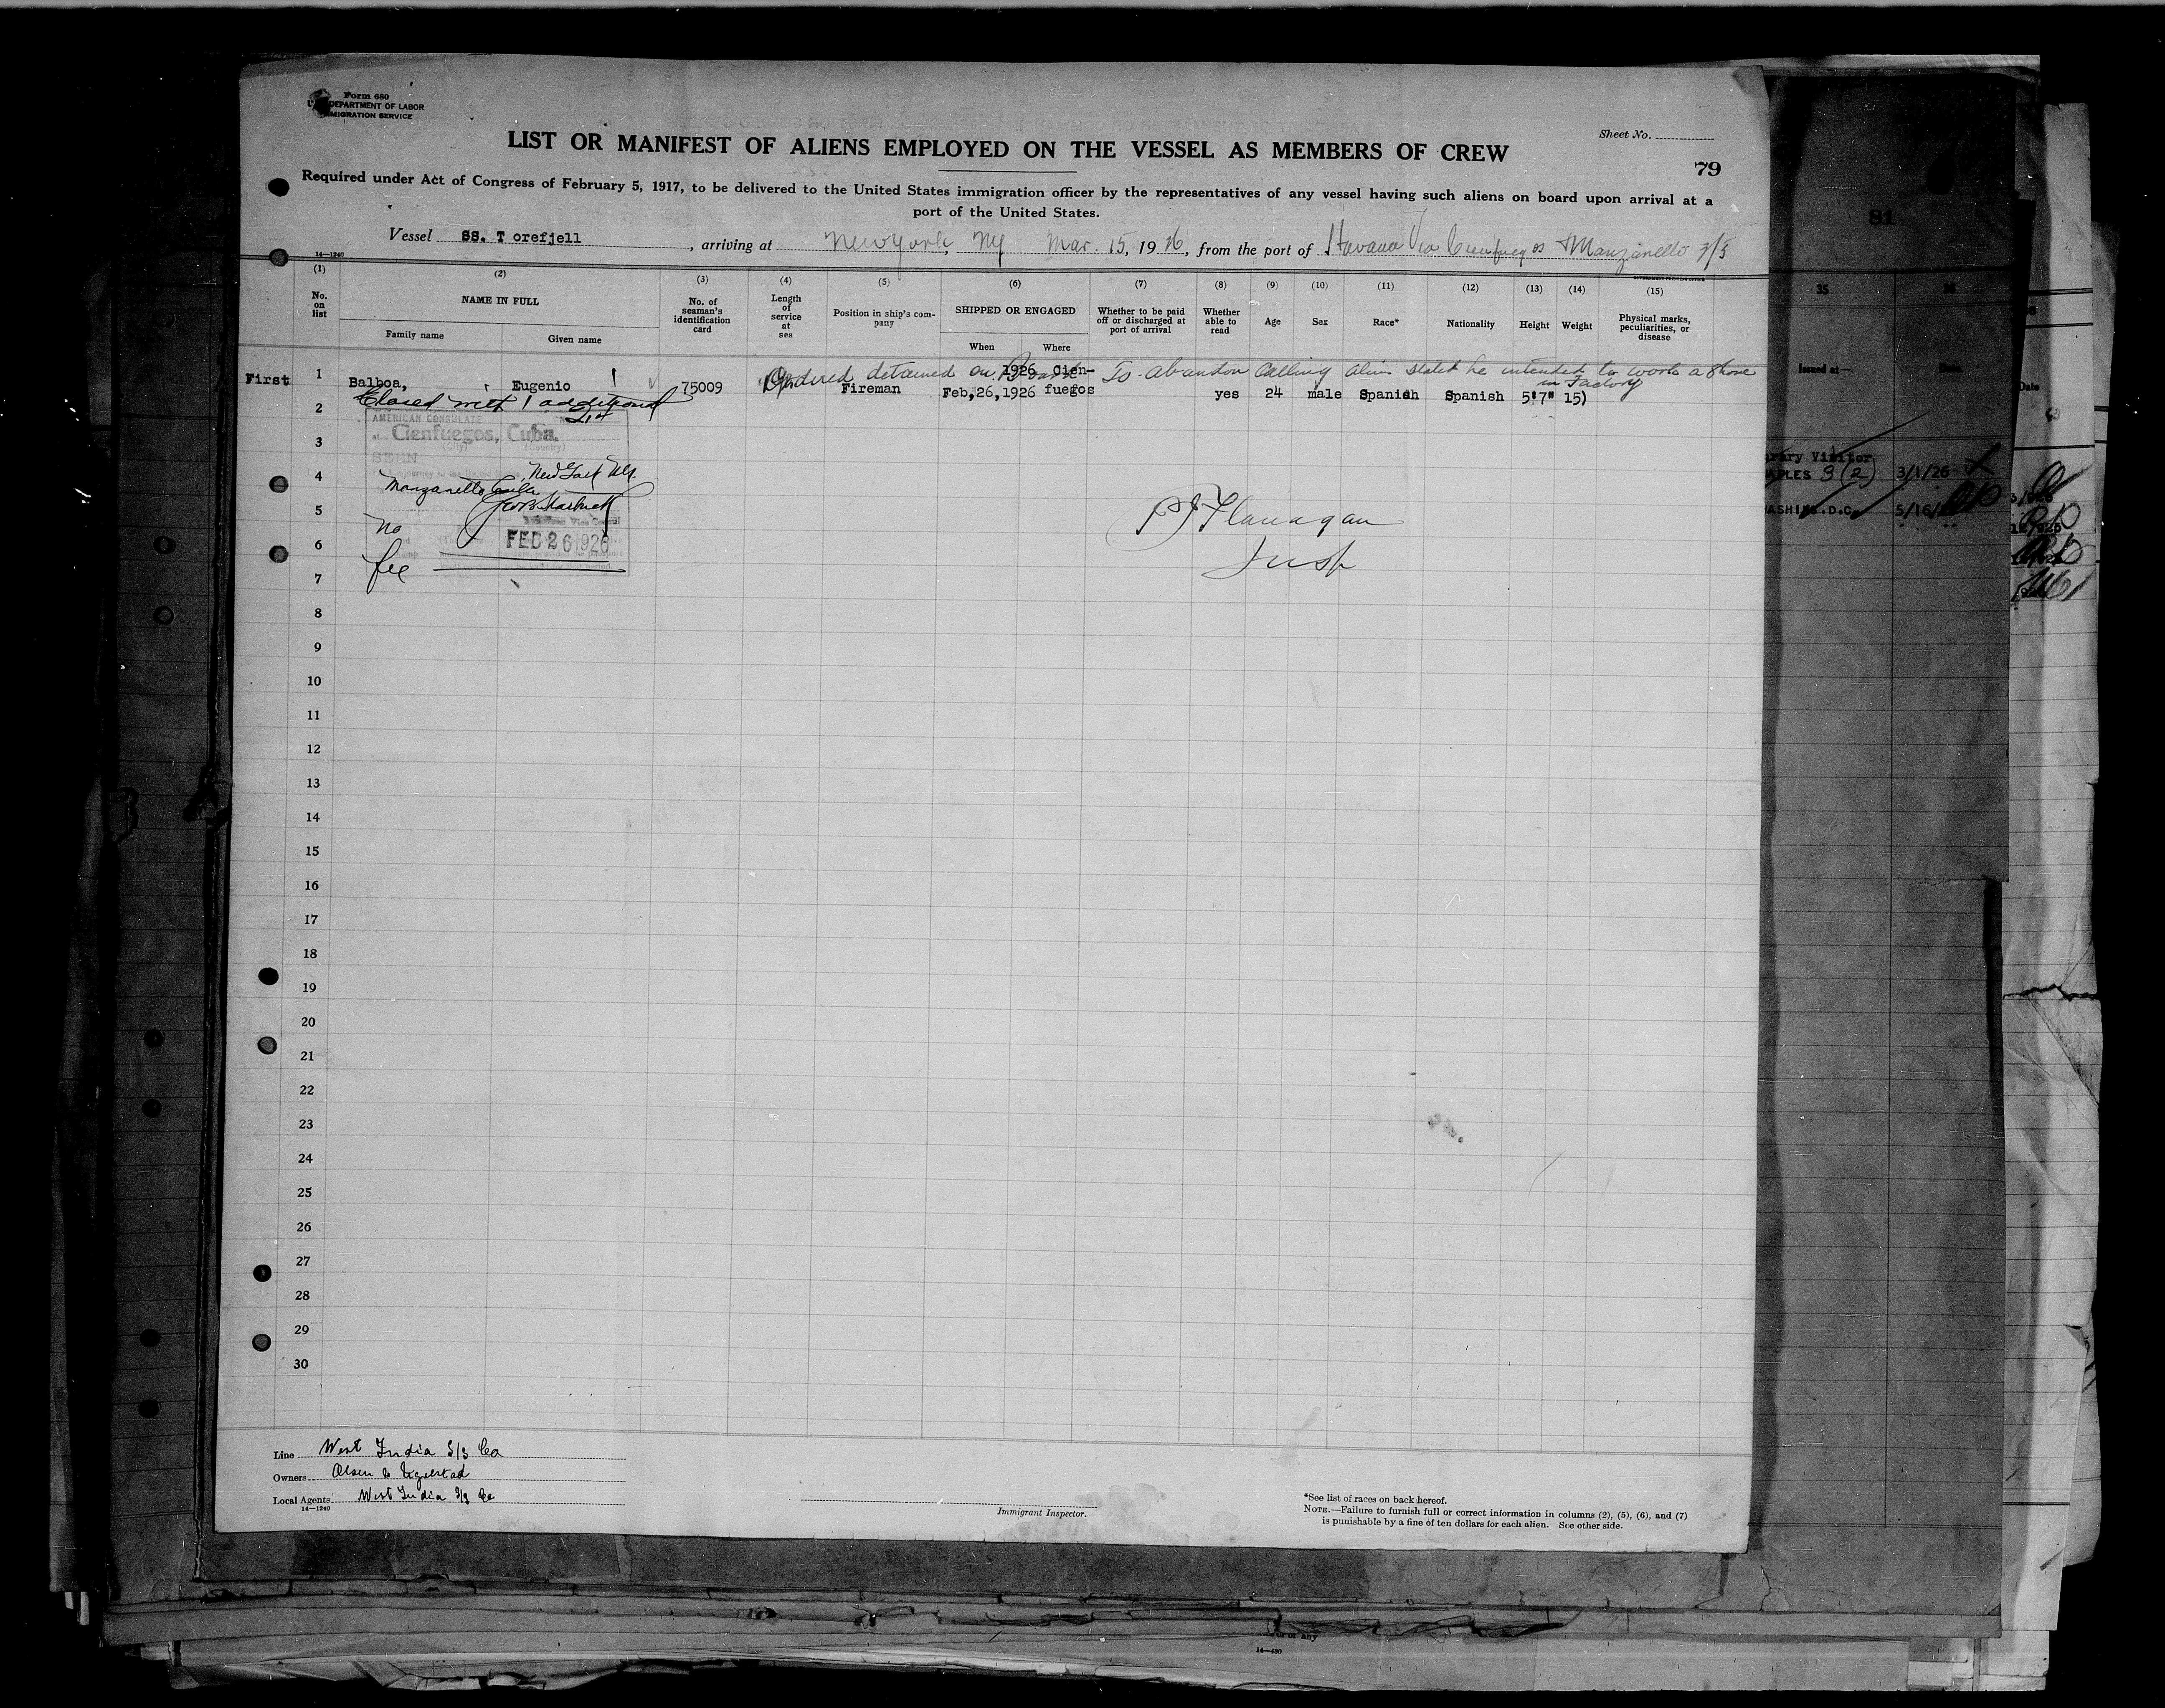 Form 680
DEPARTMENT OF LABOR
IMMIGRATION SERVICE
Sheet No.
LIST OR MANIFEST OF ALIENS EMPLOYED ON THE VESSEL AS MEMBERS OF CREW
79
Required under Act of Congress of February 5, 1917, to be delivered to the United States immigration officer by the representatives of any vessel having such aliens on board upon arrival at a
port of the United States.
Vessel SS. T orefjell, arriving at New York, NY Mar. 15, 1926, from the port of Havana Via Cienfuegos + Manzanello 3/5
14—1240
(1) (2) (3) (4) (5) (6) (7) (8) (9) (10) (11) (12) (13) (14) (15)
No. on list
NAME IN FULL
Family name
Given name
No. of seaman's identification card
Length of service at sea
Position in ship's company
SHIPPED OR ENGAGED
When
Where
Whether to be paid off or discharged at port of arrival
Whether able to read
Age
Sex
Race*
Nationality
Height
Weight
Physical marks, peculiarities, or disease
Ordered detained on Board To abandon calling alien stated he intended to work ashore
in Factory
First 1 Balboa, Eugenio 75009 Fireman Feb,26,1926 1926 Cien-
fuegos yes 24 male Spanish Spanish 5'7" 15)
Closed with 1 additional
2
AMERICAN CONSULATE
at Cienfuegos, Cuba.
(City) (Country)
3
SEEN
4
New York NY.
Manzanello Cuba
5
P J Flanagan
Insp
No
fee
6
FEB 26 1926
7
8
9
10
11
12
13
14
15
16
17
18
19
20
21
22
23
24
25
26
27
28
29
30
Line West India S/S Co
Owners Olsen & Ugelstad
Local Agents West India S/S Co
14—1240
Immigrant Inspector.
*See list of races on back hereof.
NOTE.—Failure to furnish full or correct information in columns (2), (5), (6), and (7)
is punishable by a fine of ten dollars for each alien. See other side.
81
35
Issued at—
Date
Date
Visitor
NAPLES 3 (2) 3/1/26
WASHING.D.C. 5/16/
14—430